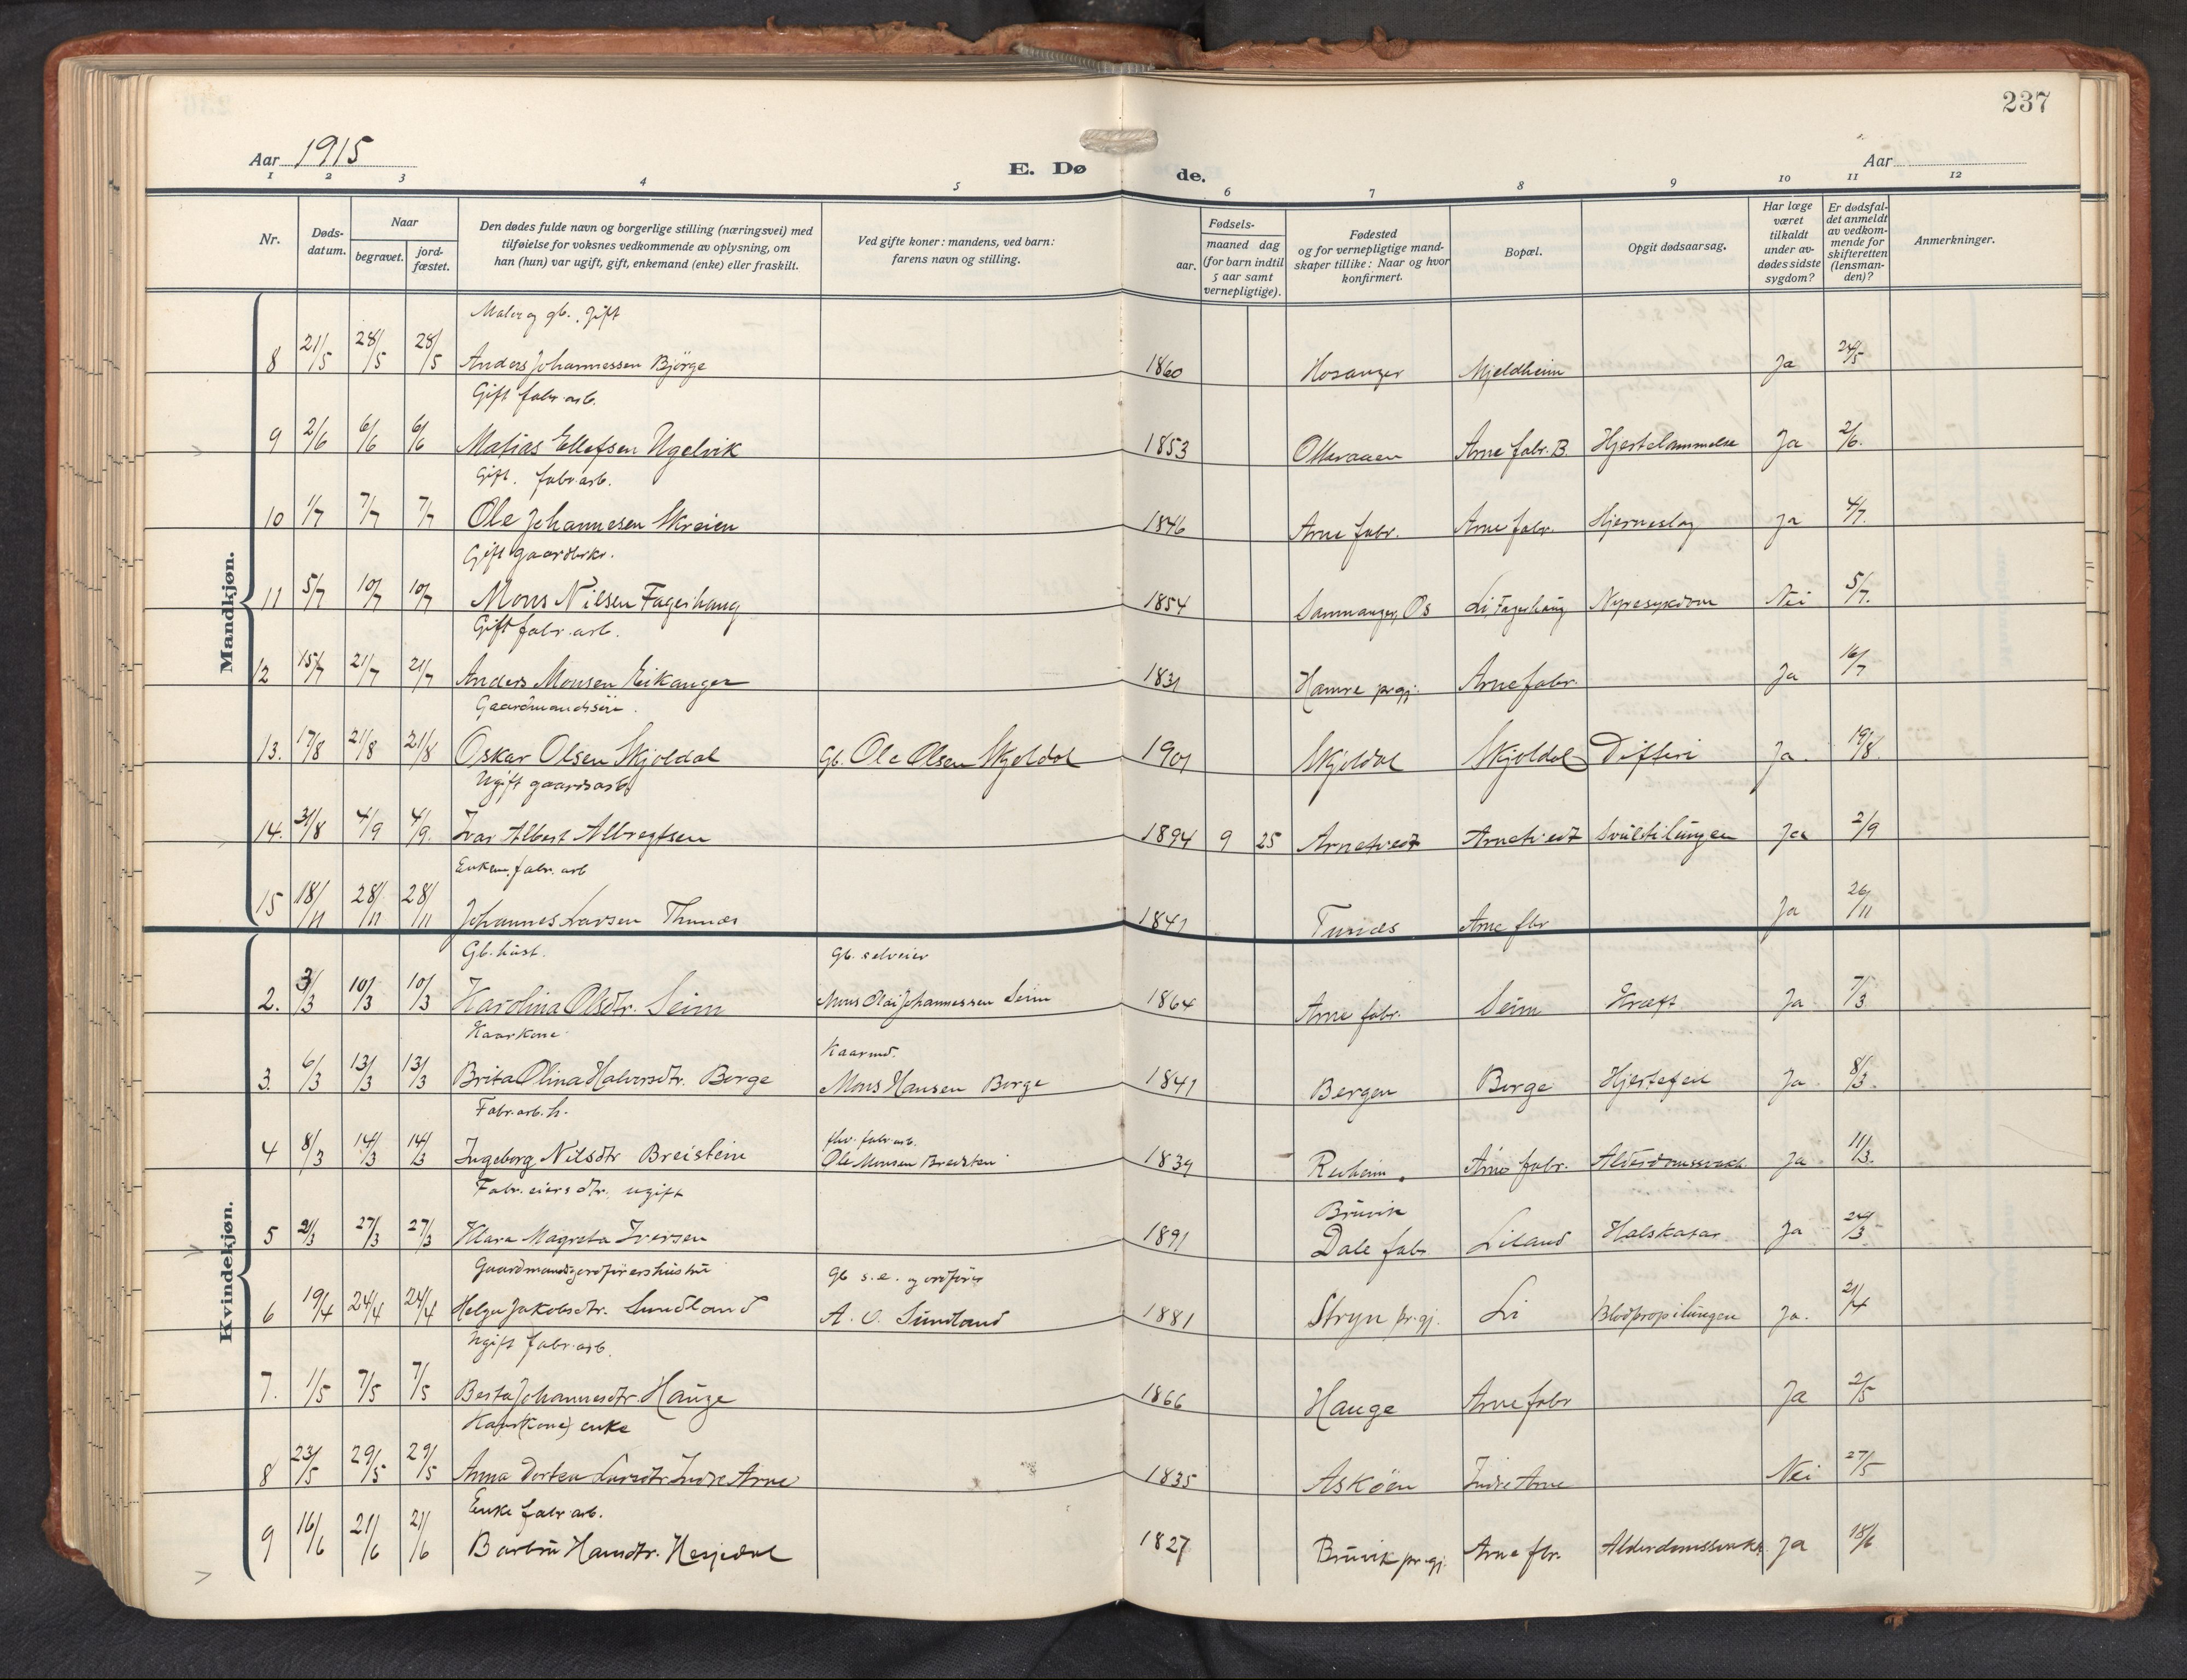 237
Aar 1915
E. Dø de.
Aar
1 2 3 4 5 6 7 8 9 10 11 12
Nr.
Døds-datum.
Naar
begravet.
jord-fæstet.
Den dødes fulde navn og borgerlige stilling (næringsvei) med
tilføielse for voksnes vedkommende av oplysning, om
han (hun) var ugift, gift, enkemand (enke) eller fraskilt.
Ved gifte koner: mandens, ved barn:
farens navn og stilling.
Fødsels-
aar.
maaned dag
(for barn indtil
5 aar samt
vernepligtige).
Fødested
og for vernepligtige mand-
skaper tillike: Naar og hvor
konfirmert.
Bopæl.
Opgit dødsaarsag.
Har læge
været
tilkaldt
under av-
dødes sidste
sygdom?
Er dødsfal-
det anmeldt
av vedkom-
mende for
skifteretten
(lensman-
den)?
Anmerkninger.
Mandkjøn.
Maler og gb. gift
8 21/5 28/5 28/5 Anders Johannessen Bjørge 1860 Hosanger Mjeldheim Ja 24/5
Gift fabr. arb.
9 2/6 6/6 6/6 Matias Ellefsen Ugelvik 1853 Arne fabr. B. Hjertelammelse Ja 2/6.
Gift. fabr arb.
10 1/7 7/7 7/7 Ole Johannesen Skreien 1846 Arne fabr. Arne fabr. Hjerneslag Ja 4/7.
Gift gaardbrkr.
11 5/7 10/7 10/7 Mons Nilsen Fagerhaug 1854 Samnanger, Os Li, Fagerhaug Nyresykdom Nei 5/7.
Gift fabr. arb.
12 15/7 21/7 21/7 Anders Monsen Eikanger 1831 Hamre prgj. Arne fabr. Ja 16/7
Gaardmandssøn.
13. 17/8 21/8 21/8 Oskar Olsen Skjoldal Gb. Ole Olsen Skjoldal 1901 Skjoldal Skjoldal Difteri Ja. 19/8.
Ugift gaardsarb.
14. 31/8 4/9 4/9. Ivar Albert Albregtsen 1894 9 25 Arnetvedt Arnetvedt Svulst i lungen Ja 2/9
Enkem. fabr. arb
15 18/11 28/11 28/11 Johannes Larsen Thunes 1841 Tunes Arne fbr Ja 26/11
Kvindekjøn.
Gb. hust. Gb. selveier
2. 3/3 10/3 10/3 Karolina Olsdtr. Seim Mons Olai Johannessen Seim 1864 Arne fabr. Seim Kræft Ja 7/3
Kaarkone Kaarmd.
3. 6/3 13/3 13/3 Brita Olina Halvorsdtr. Borge Mons Hansen Borge 1841 Bergen Borge Hjertefeil Ja 8/3.
Fabr. arb. h. fhv. fabr arb.
4 8/3 14/3 14/3 Ingeborg Nilsdtr Breistein Ole Monsen Breistein 1839 Arne fabr. Ja 11/3.
Fabr. eiers dtr. ugift
5 21/3 27/3 27/3 Klara Magreta Iversen 1891 Bruvik Dale fabr Liland Halskatar Ja 24/3
Gaardmands og ordførers hustru Gb s.e. og ordfører
6 19/4 24/4 24/4 Helga Jakobsdtr. Sundland A. O. Sundland 1881 Stryn pr.gj. Li Blodprop i lungen Ja. 21/4
Ugift fabr. arb.
7. 1/5 7/5 7/5 Berta Johannesdtr. Hauge 1866 Hauge Arne fabr Ja 2/5
Kaar(kone) enke
8 23/5 29/5 29/5 Anna Dortea Larsdtr Indre Arne 1835 Askøen Indre Arne Nei 27/5
Enke fabr arb.
9 16/6 21/6 21/6 Barbru Hansdtr. Hesjedal 1827 Bruvik pr.gj. Arne fbr. Ja 18/6